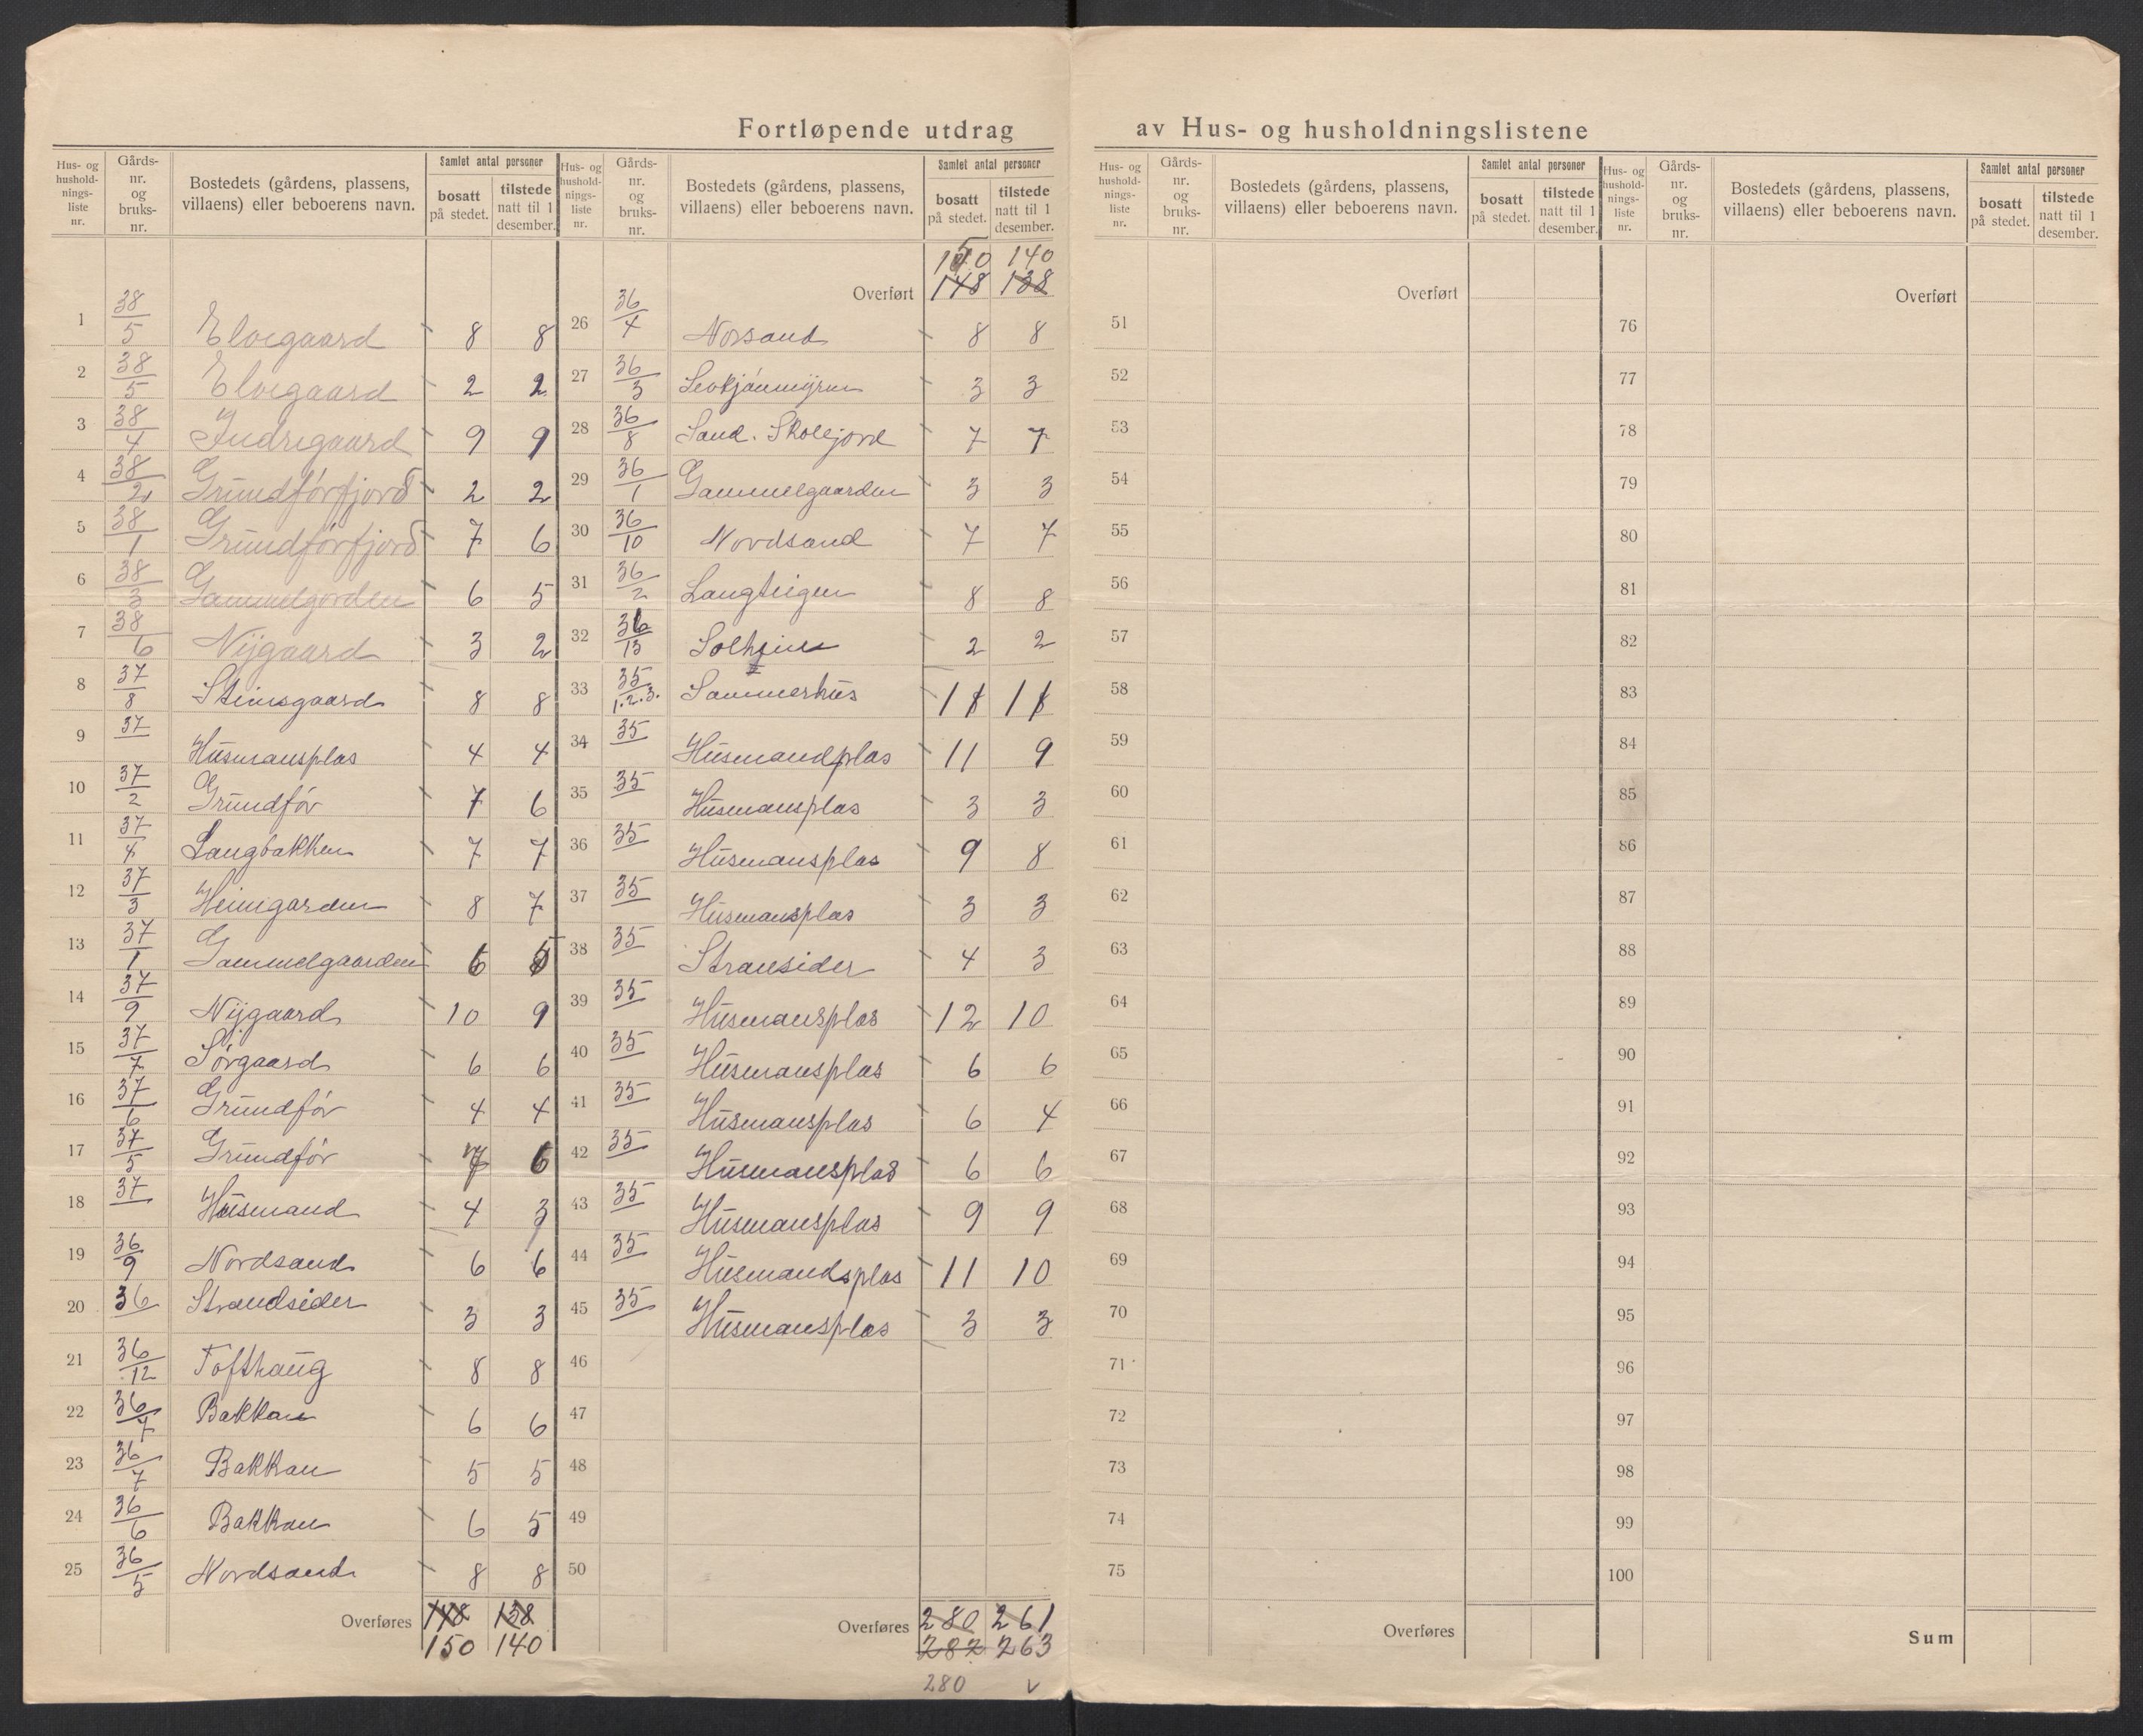 Fortløpende utdrag av Hus- og husholdningslistene
Hus- og hushold-nings-liste nr. | Gårds-nr. og bruks-nr. | Bostedets (gårdens, plassens, villaens) eller beboerens navn. | Samlet antal personer | bosatt på stedet. | tilstede natt til 1 desember.
1 38/5 Elvegaard 8 8
2 38/5 Elvegaard 2 2
3 38/4 Indregaard 9 9
4 38/2 Grundførfjord 2 2
5 38/1 Grundførfjord 7 6
6 38/3 Gammelgorden 6 5
7 38/6 Nijgaard 3 2
8 37/8 Steinsgaard 8 8
9 37 Husmansplas 4 4
10 37/2 Grundfør 7 6
11 37/4 Langbakken 7 7
12 37/3 Heimgarden 8 7
13 37/1 Gammelgaarden 6 5
14 37/9 Nijgaard 10 9
15 37/7 Sørgaard 6 6
16 37/6 Grundfør 4 4
17 37/5 Grundfør 7 6
18 37 Husmand 4 3
19 36/9 Nordsand 6 6
20 36 Strandsider 3 3
21 36/12 Tofthaug 8 8
22 36/7 Bakkan 6 6
23 36/7 Bakkan 5 5
24 36/6 Bakkan 6 5
25 36/5 Nordsand 8 8
Overføres 148 138
150 140
Hus- og hushold-nings-liste nr. | Gårds-nr. og bruks-nr. | Bostedets (gårdens, plassens, villaens) eller beboerens navn. | Samlet antal personer | bosatt på stedet. | tilstede natt til 1 desember.
150 140
Overført 148 138
26 36/4 Norsand 8 8
27 36/3 3 3
28 36/8 Sand. Skolejord 7 7
29 36/1 Gammelgaarden 3 3
30 36/10 Nordsand 7 7
31 36/2 Langteigen 8 8
32 36/13 Solheim 2 2
33 35/1.2.3. Sammerhus 11 11
34 35 Husmandplas 11 9
35 35 Husmansplas 3 3
36 35 Husmansplas 9 8
37 35 Husmansplas 3 3
38 35 Stransider 4 3
39 35 Husmansplas 12 10
40 35 Husmansplas 6 6
41 35 Husmansplas 6 4
42 35 Husmansplas 6 6
43 35 Husmansplas 9 9
44 35 Husmandsplas 11 10
45 35 Husmansplas 3 3
46
47
48
49
50
Overføres 280 261
282 263
280 v
Hus- og hushold-nings-liste nr. | Gårds-nr. og bruks-nr. | Bostedets (gårdens, plassens, villaens) eller beboerens navn. | Samlet antal personer | bosatt på stedet. | tilstede natt til 1 desember.
Overført
51
52
53
54
55
56
57
58
59
60
61
62
63
64
65
66
67
68
69
70
71
72
73
74
75
Overføres
Hus- og hushold-nings-liste nr. | Gårds-nr. og bruks-nr. | Bostedets (gårdens, plassens, villaens) eller beboerens navn. | Samlet antal personer | bosatt på stedet. | tilstede natt til 1 desember.
Overført
76
77
78
79
80
81
82
83
84
85
86
87
88
89
90
91
92
93
94
95
96
97
98
99
100
Sum